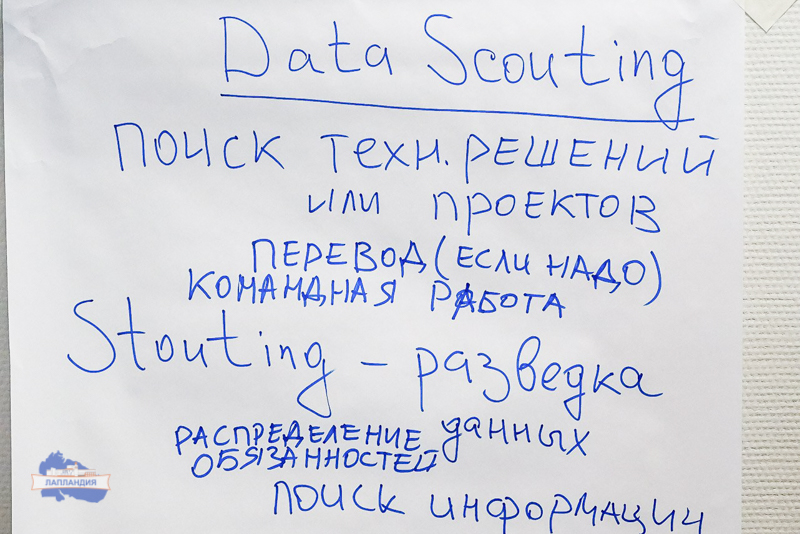 Data Scouting
ПОИСК ТЕХН. РЕШЕНИЙ
ИЛИ ПРОЕКТОВ
ПЕРЕВОД (ЕСЛИ НАДО)
КОМАНДНАЯ РАБОТА
Stouting – разведка
данных
РАСПРЕДЕЛЕНИЕ
ОБЯЗАННОСТЕЙ
ПОИСК ИНФОРМАЦИИ
ЛАПЛАНДИЯ